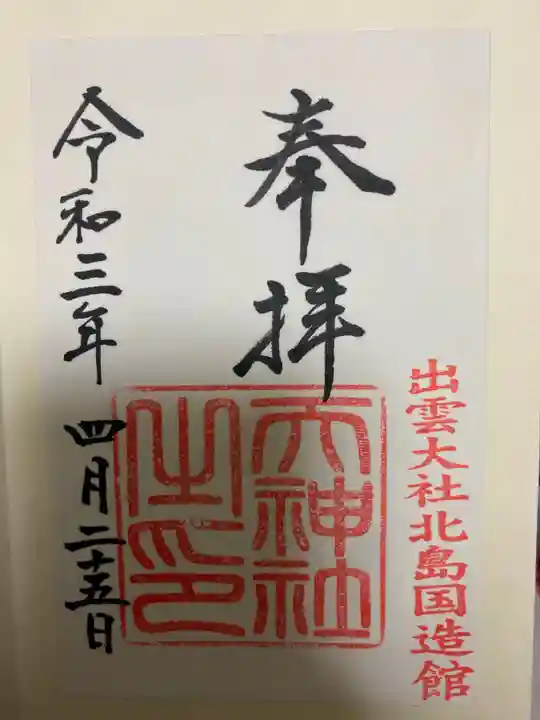 出雲大社北島国造館
奉拝
天神社
之印
令和三年 四月二十五日